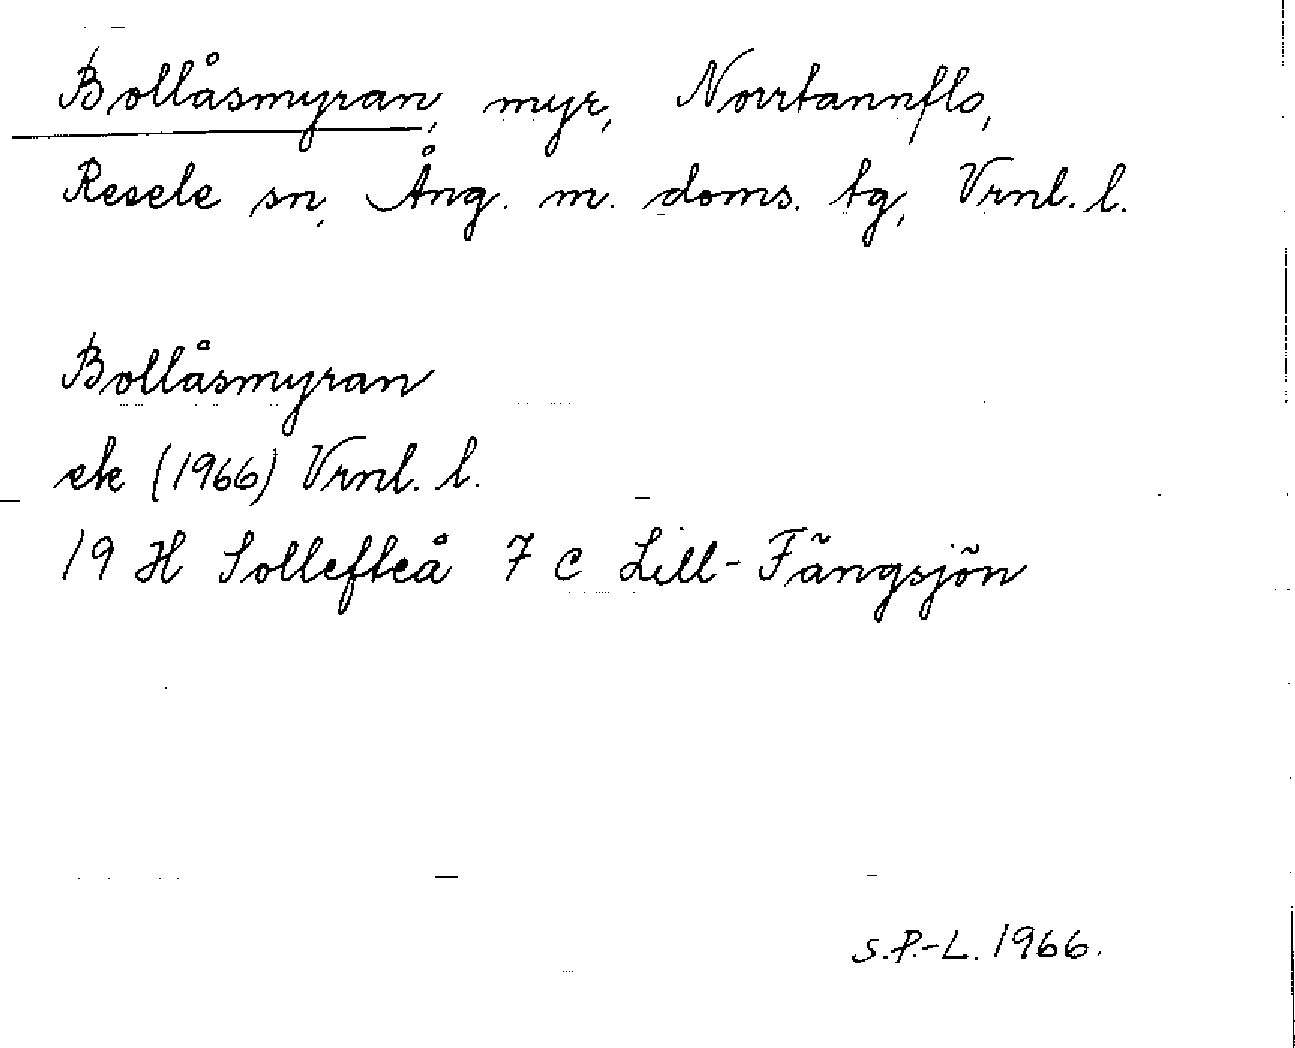 Bollåsmyran, myr, Norrtannflo,
Resele sn, Ång. m. doms. tg, Vrnl. l.
Bollåsmyran
ek (1966) Vrnl. l.
19 H Sollefteå 7 c Lill-Fängsjön
S.P.-L. 1966.